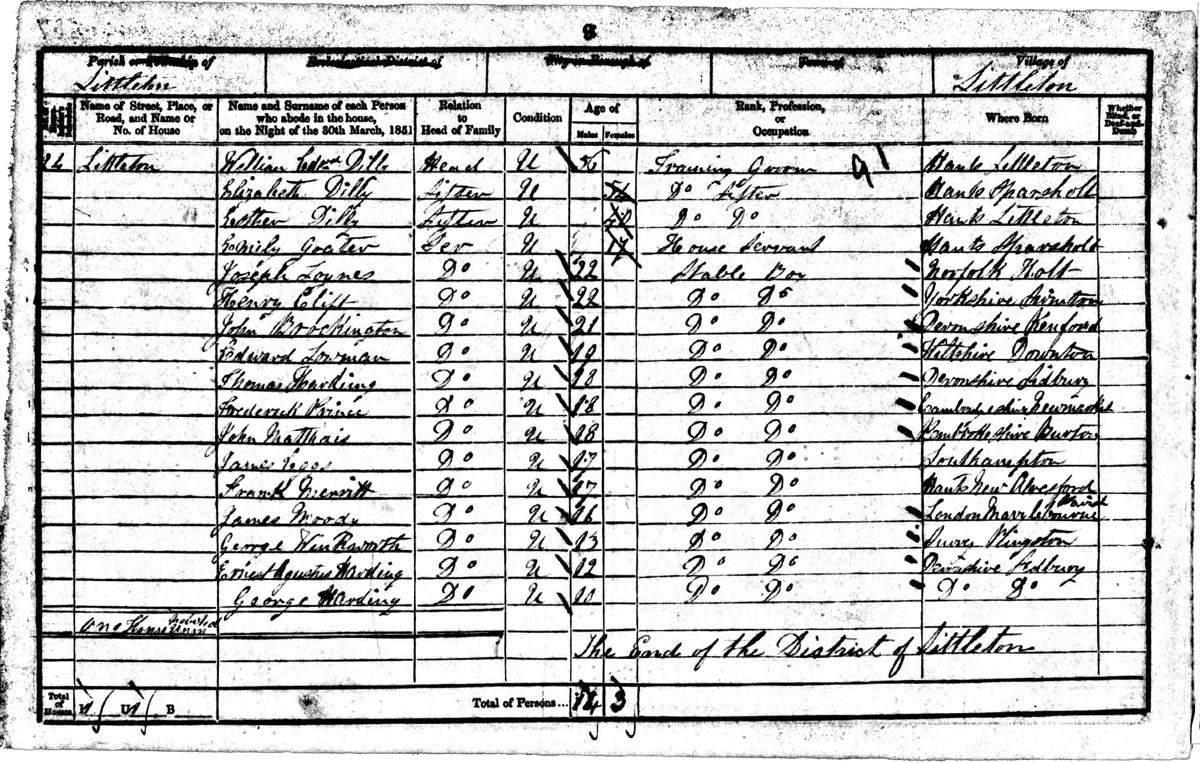 Parish of
Ecclesiastical District of
City or Borough of
Town of
Village of
Littleton
Littleton
Name of Street, Place, or Road, and Name or No. of House
Name and Surname of each Person who abode in the house, on the Night of the 30th March, 1851
Relation to Head of Family
Condition
Age of
Males Females
Rank, Profession, or Occupation
Where Born
Whether Blind, or Deaf-and-Dumb
24 Littleton William Edwd Dilly Head U 56 Training Groom 91 Hants Littleton
Elizabeth Dilly Sister U Do Sister Hants Sparsholt
Esther Dilly Sister U Do Do Hants Littleton
Emily Goater Ser U 17 House Servant Hants Sparsholt
Joseph Loynes Do U 22 Stable Boy Norfolk Holt
Henry Clift Do U 22 Do Do Yorkshire
John Brockington Do U 21 Do Do Devonshire Kenford
Edward Lowman Do U 19 Do Do Wiltshire Downton
Thomas Harding Do U 18 Do Do Devonshire Sidbury
Frederick Prince Do U 18 Do Do Cambridgeshire Newmarket
John Matthais Do U 18 Do Do Pembrokeshire Burton
James Do U 17 Do Do Southampton
Frank Merritt Do U 17 Do Do Hants New Alresford
James Moody Do U 16 Do Do London Marylebourne
George Winkworth Do U 13 Do Do Surrey Kingston
Ernest Agustus Harding Do U 12 Do Do Devonshire Sidbury
George Harding Do U 10 Do Do Do Do
One House
The End of the District of Littleton
Total of Houses I 1 U 1 B Total of Persons... 14 3